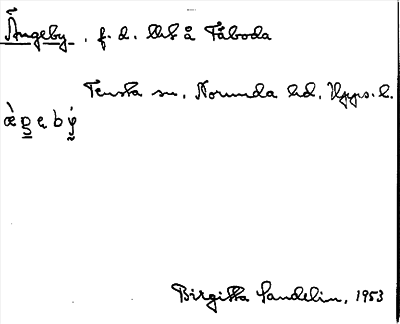 Ängeby. f. d. lht å Tåboda
Tensta sn, Norunda hd, Upps. l.
Birgitta Sandelin, 1953